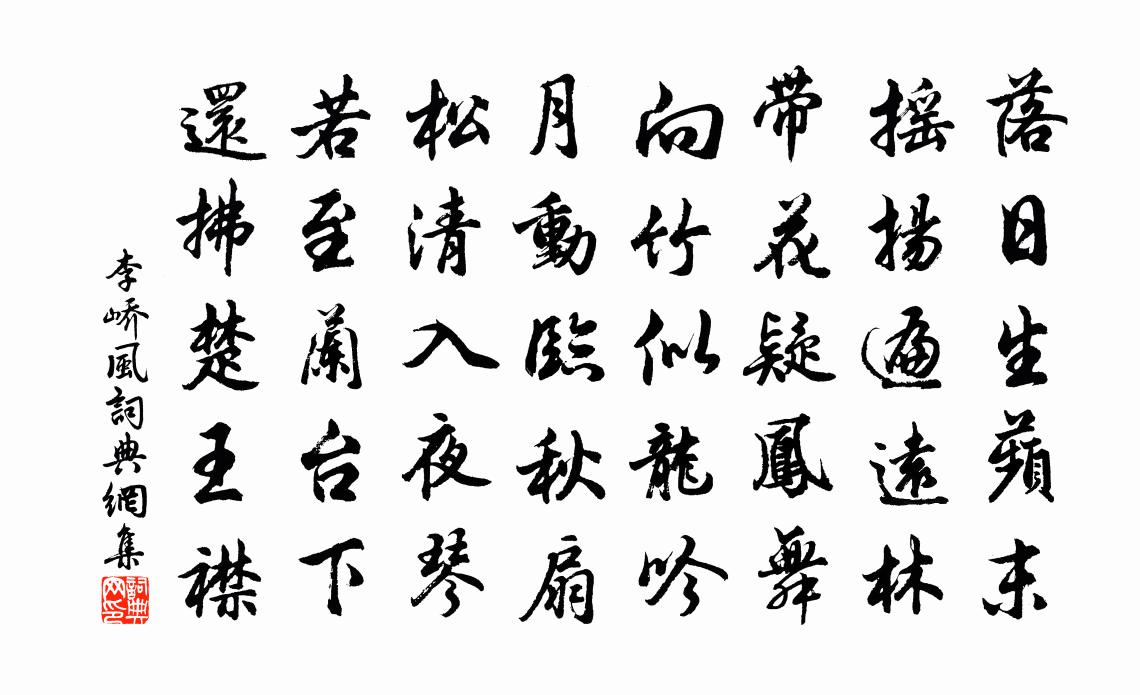 落日生蘋末
搖揚遍遠林
帶花疑鳳舞
向竹似龍吟
月動臨秋扇
松清入夜琴
若至蘭台下
還拂楚王襟
李嶠風詞典網集
詞典網印